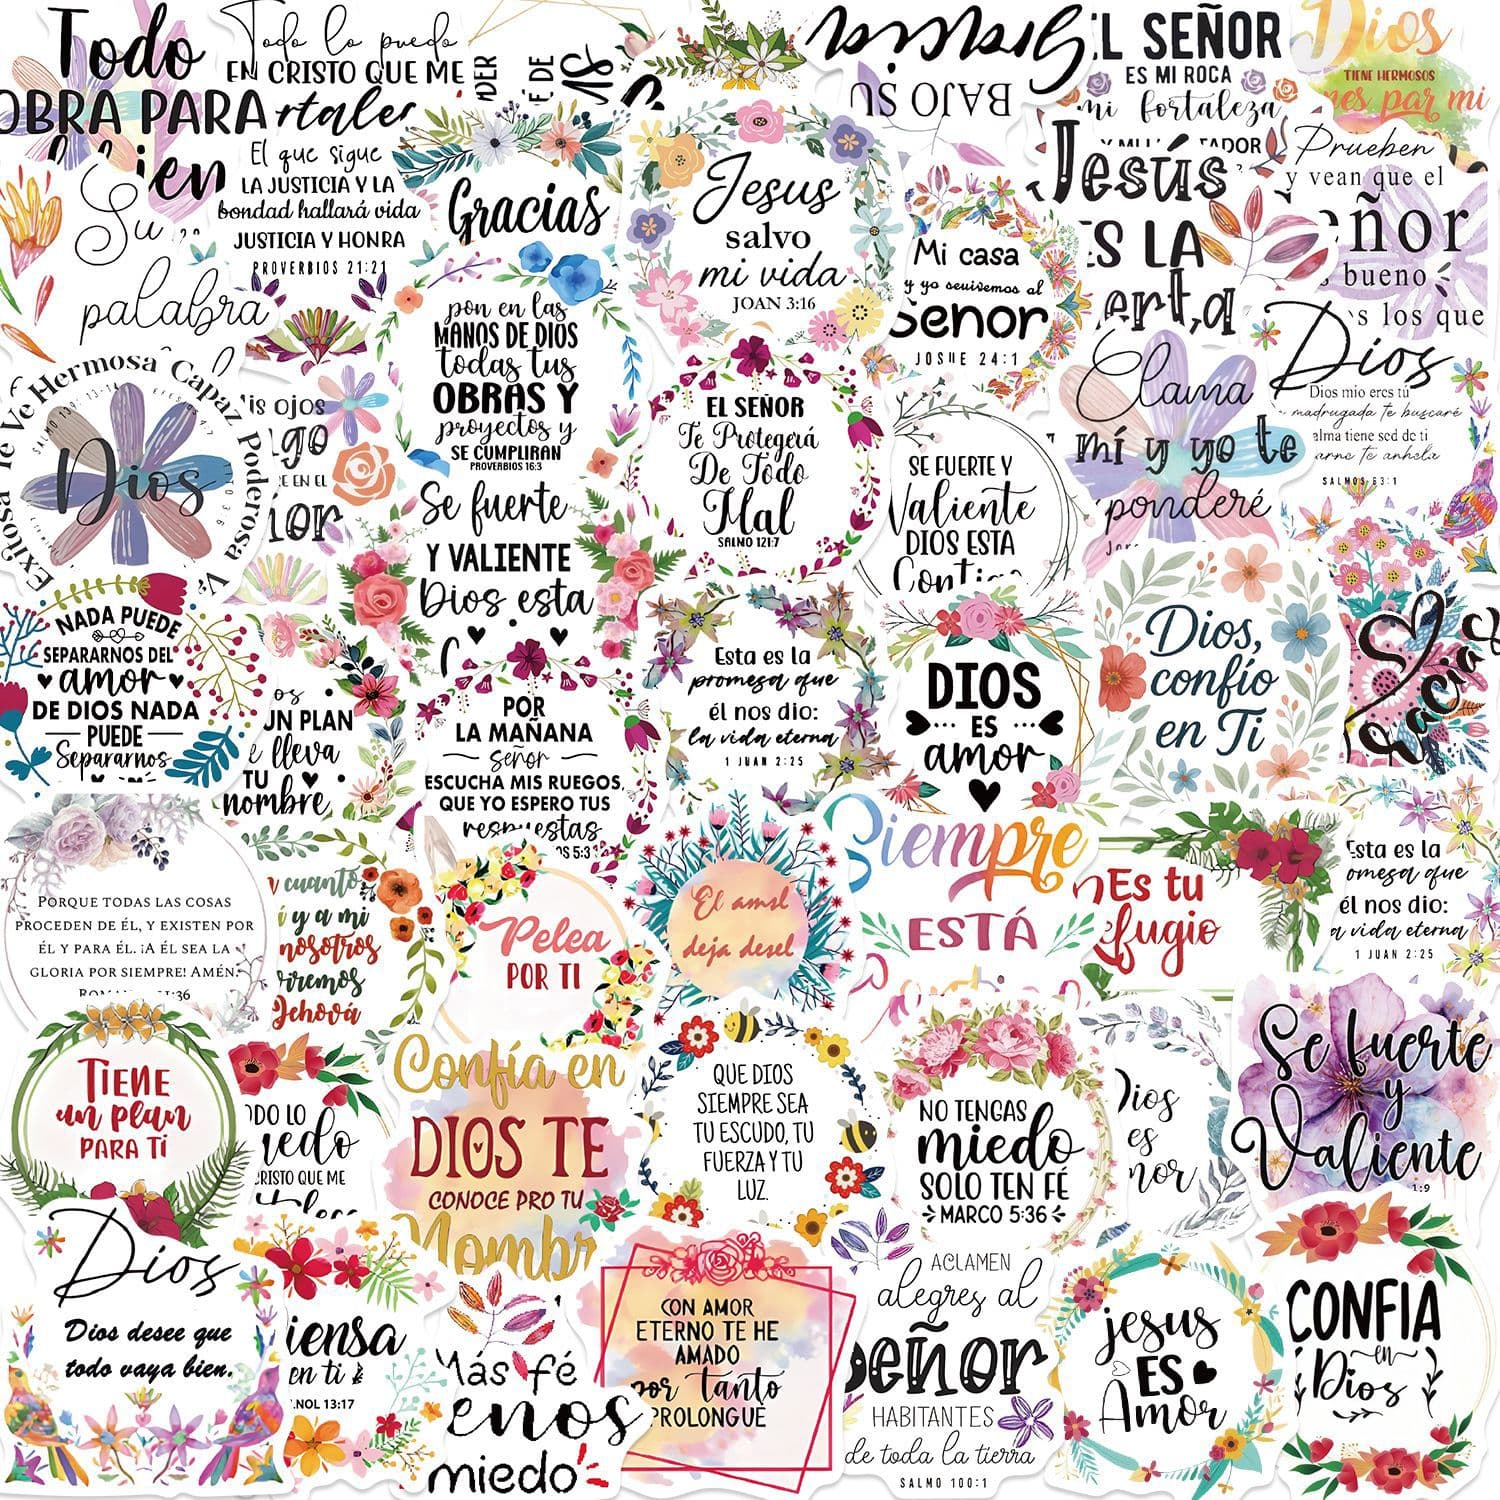 Todo
OBRA PARA
bien
Todo lo puedo
EN CRISTO QUE ME
BAJO SU
EL SEÑOR
ES MI ROCA
mi fortaleza
Dios
TIENE HERMOSOS
par mi
El que sigue
LA JUSTICIA Y LA
bondad hallará vida
JUSTICIA Y HONRA
PROVERBIOS 21:21
Gracias
Jesus
salvo
mi vida
JOAN 3:16
Mi casa
y yo seuivemos al
Señor
JOSUE 24:1
Jesús
ES LA
Prueben
y vean que el
bueno
los que
Su
palabra
Exitosa Te Ve Hermosa Capaz Poderosa
Dios
mis ojos
pon en las
MANOS DE DIOS
todas tus
OBRAS Y
proyectos y
SE CUMPLIRAN
PROVERBIOS 16:3
EL SEÑOR
Te Protegerá
De Todo
Mal
SALMO 121:7
SE FUERTE Y
Valiente
DIOS ESTA
Contigo
Clama
mí y yo te
ponderé
Dios
Dios mio eres tú
madrugada te buscaré
alma tiene sed de ti
arne te anhela
SALMOS 63:1
Se fuerte
Y VALIENTE
Dios esta
NADA PUEDE
SEPARARNOS DEL
amor
DE DIOS NADA
PUEDE
Separarnos
UN PLAN
lleva
TU
nombre
POR
LA MAÑANA
Señor
ESCUCHA MIS RUEGOS,
QUE YO ESPERO TUS
respuestas
5:3
Esta es la
promesa que
él nos dio:
la vida eterna
1 JUAN 2:25
DIOS
ES
amor
Dios,
confío
en Ti
Gracias
PORQUE TODAS LAS COSAS
PROCEDEN DE ÉL, Y EXISTEN POR
ÉL Y PARA ÉL. ¡A ÉL SEA LA
GLORIA POR SIEMPRE! AMÉN.
cuanto
y a mi
nosotros
Jehová
Pelea
POR TI
El amsl
deja desel
Siempre
ESTÁ
Es tu
Esta es la
omesa que
él nos dio:
a vida eterna
1 JUAN 2:25
TIENE
un plan
PARA TI
CRISTO QUE ME
Confía en
DIOS TE
CONOCE PRO TU
Nombr
QUE DIOS
SIEMPRE SEA
TU ESCUDO, TU
FUERZA Y TU
LUZ.
NO TENGAS
miedo
SOLO TEN FÉ
MARCO 5:36
Dios
es
Se fuerte
y
Valiente
1:9
Dios
Dios desee que
todo vaya bien.
iensa
en ti
13:17
Más fé
enos
miedo
CON AMOR
ETERNO TE HE
AMADO
por tanto
PROLONGUÉ
ACLAMEN
alegres al
Señor
HABITANTES
de toda la tierra
SALMO 100:1
jesus
ES
Amor
CONFIA
en
Dios